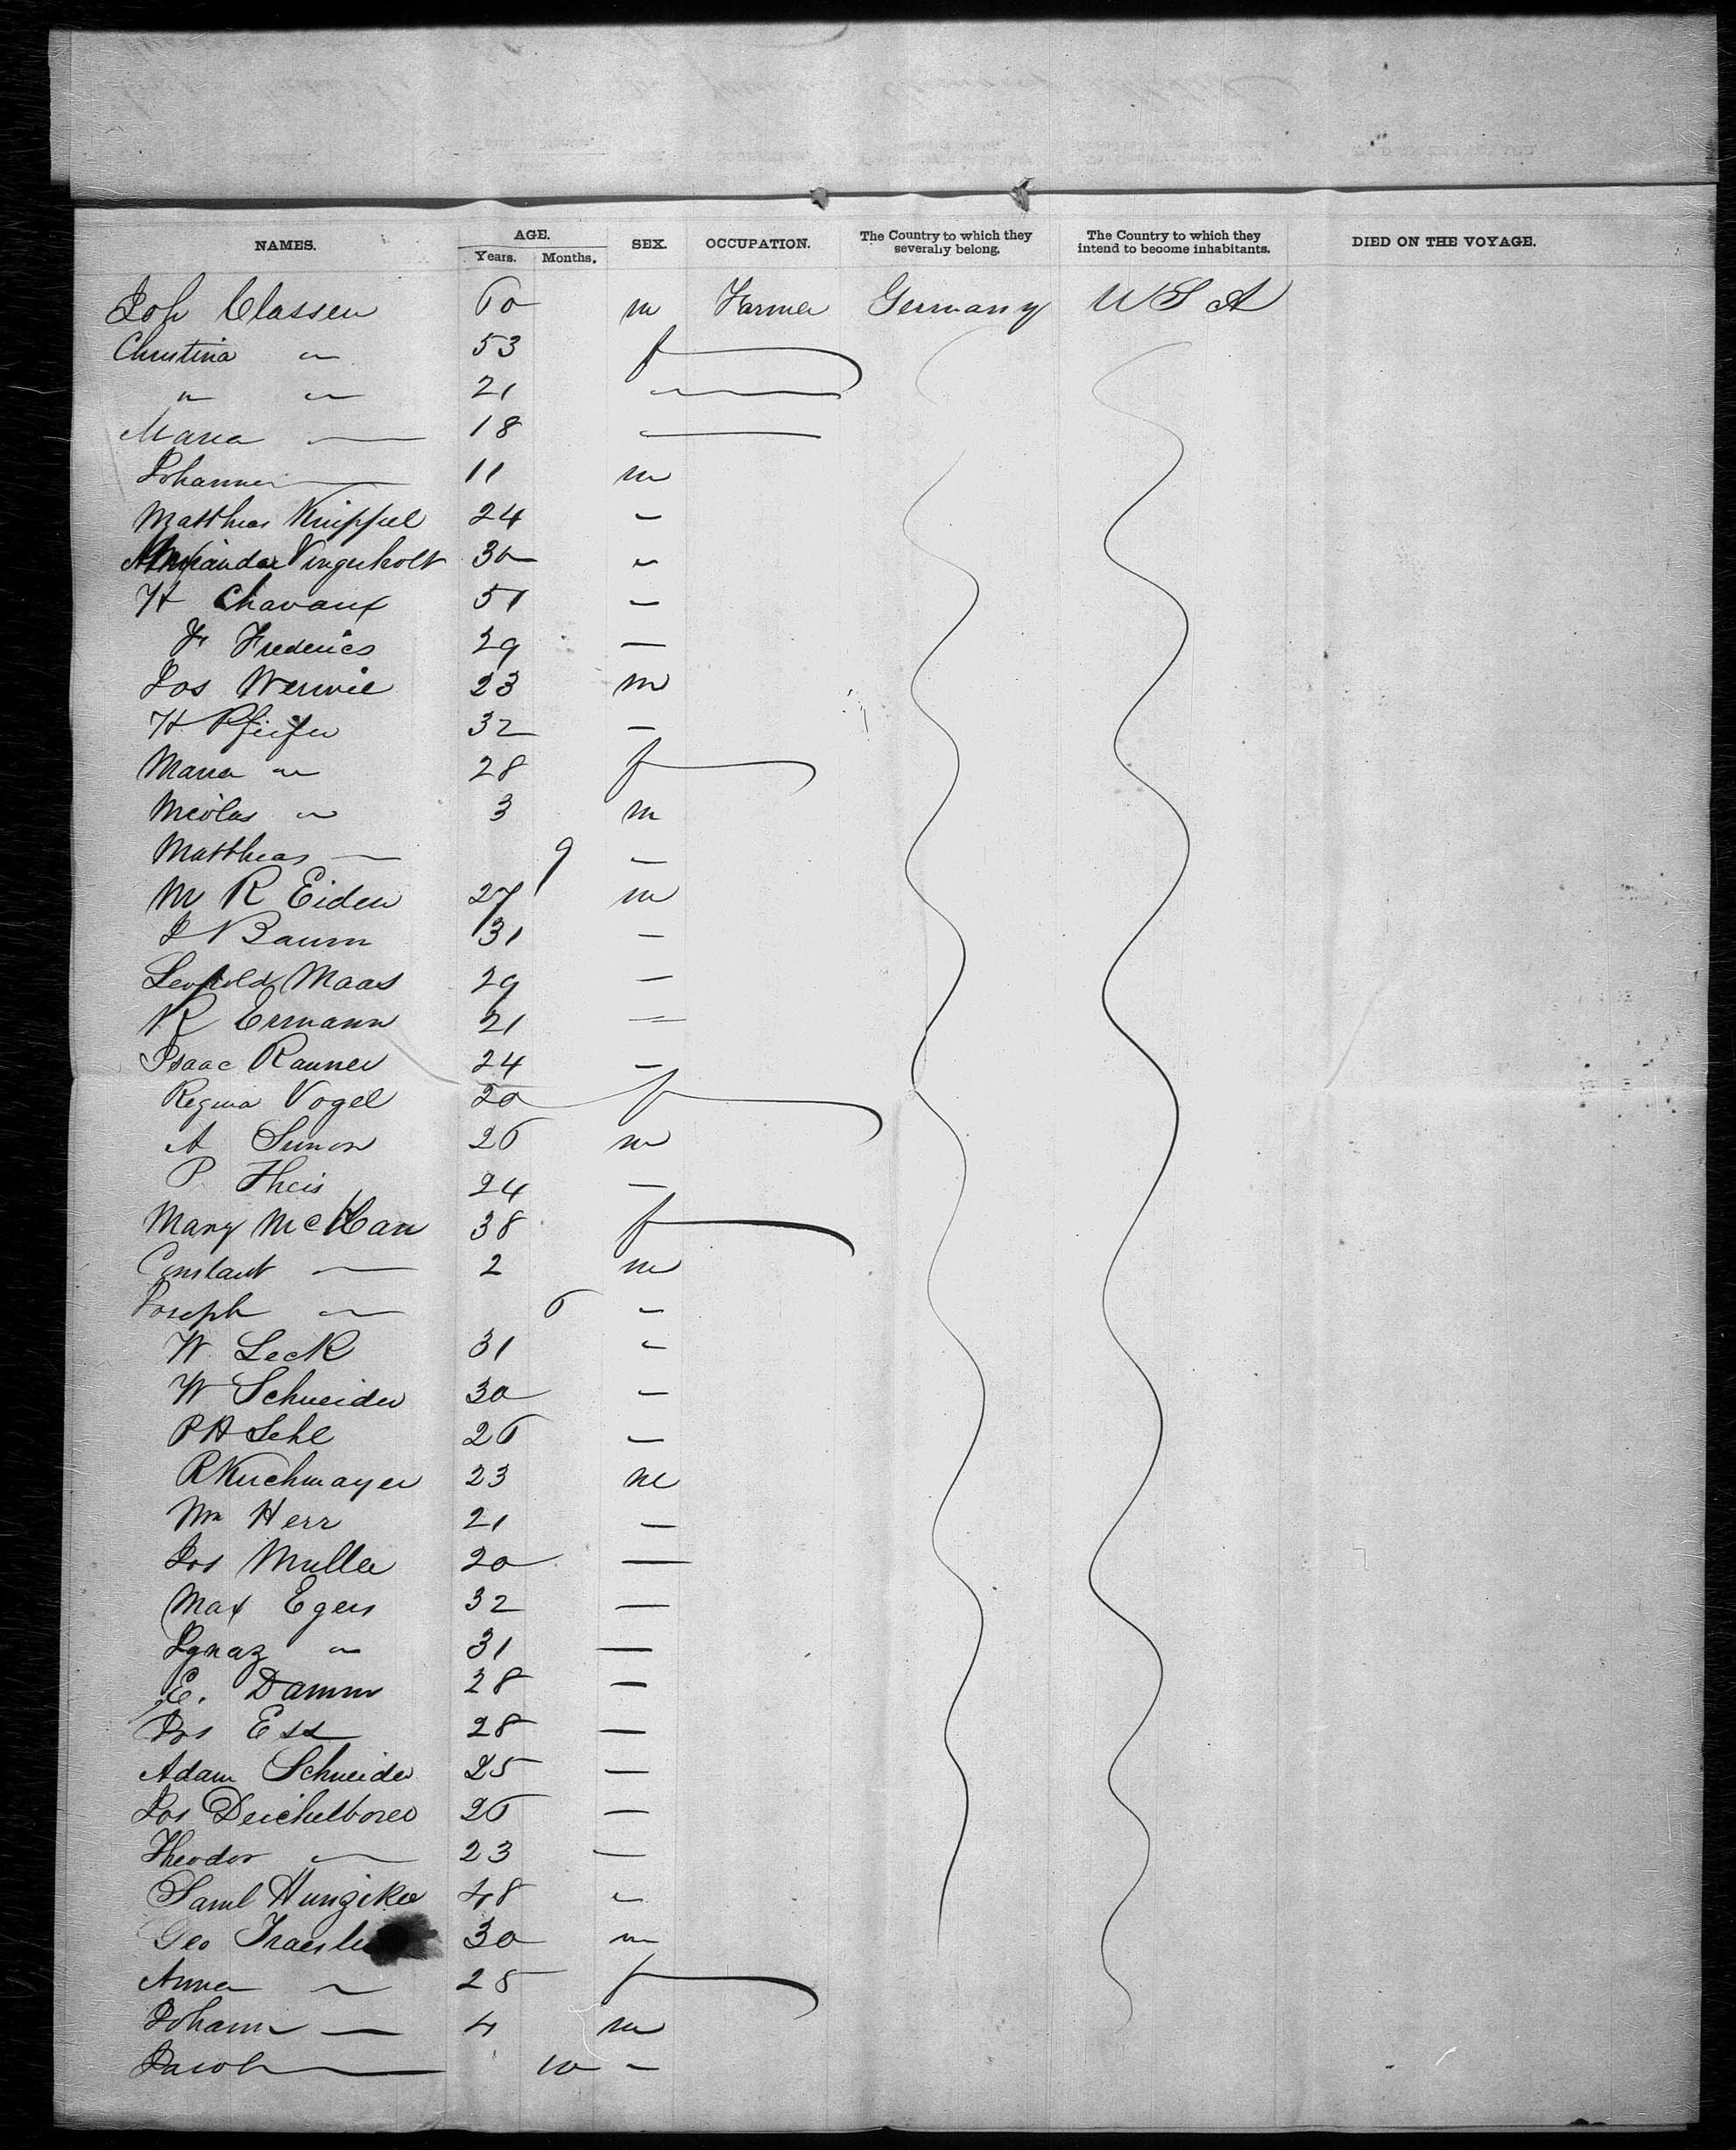 NAMES. AGE. Years. Months. SEX. OCCUPATION. The Country to which they severally belong. The Country to which they intend to become inhabitants. DIED ON THE VOYAGE.
Joh Classen 60 m Farmer Germany U S A
Christina " 53 f
" " 21 "
Maria — 18 —
Johannes — 11 m
Matthias Knippel 24 —
Vinguholt 30 "
H Chavant 51 —
Fr Frederics 29 —
Jos Werwie 23 m
H Pfeifer 32 —
Maria " 28 f
Nicolas " 3 m
Matthias — 9 —
M R Eiden 27 m
J Baum 31 —
Leopold Maas 29 —
R Ermann 21 =
Isaac Rauner 24 —
Regina Vogel 20 f
A Simon 26 m
P. Theis 24 —
Mary Mc 38 f
Constant — 2 m
Joseph " 6 —
W. Leck 31 "
W Schneider 30 —
P A Sehl 26 —
R Kuchmayer 23 m
Wm Herr 21 —
Jos Muller 20 —
Max Egers 32 —
Ignaz " 31 —
E. Damm 28 —
Jos Ess 28 —
Adam Schneider 25 —
Jos Deichelborer 26 —
Theodor " 23 —
Saml Hunziker 48 "
Geo 30 m
Anna " 28 f
Johann — 4 m
Jacob — 10 —